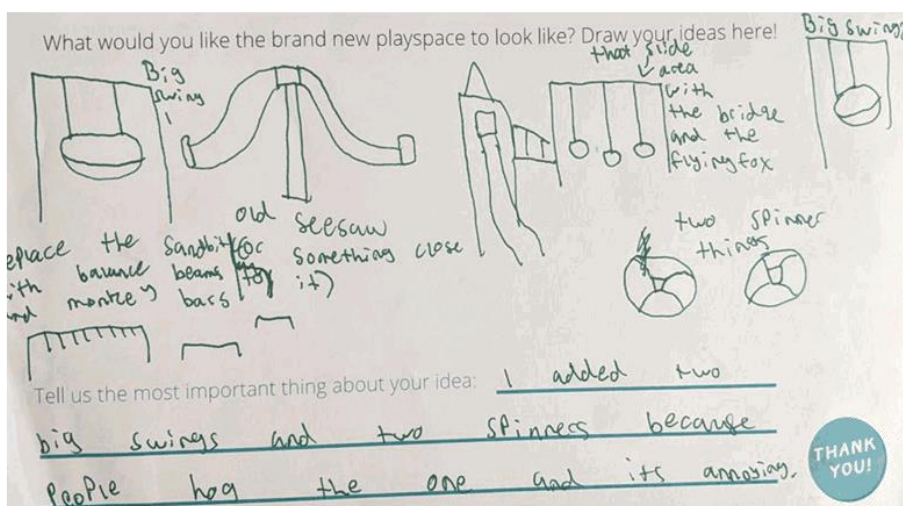 What would you like the brand new playspace to look like? Draw your ideas here!
Big
swing
that slide
area
with
the bridge
and the
flying fox
Big swing
old seesaw
(or something close
to it)
eplace the sandbit
ith balance beams
nd monkey bars
two spinner
things
Tell us the most important thing about your idea: I added two
big swings and two spinners because
people hog the one and its annoying.
THANK
YOU!